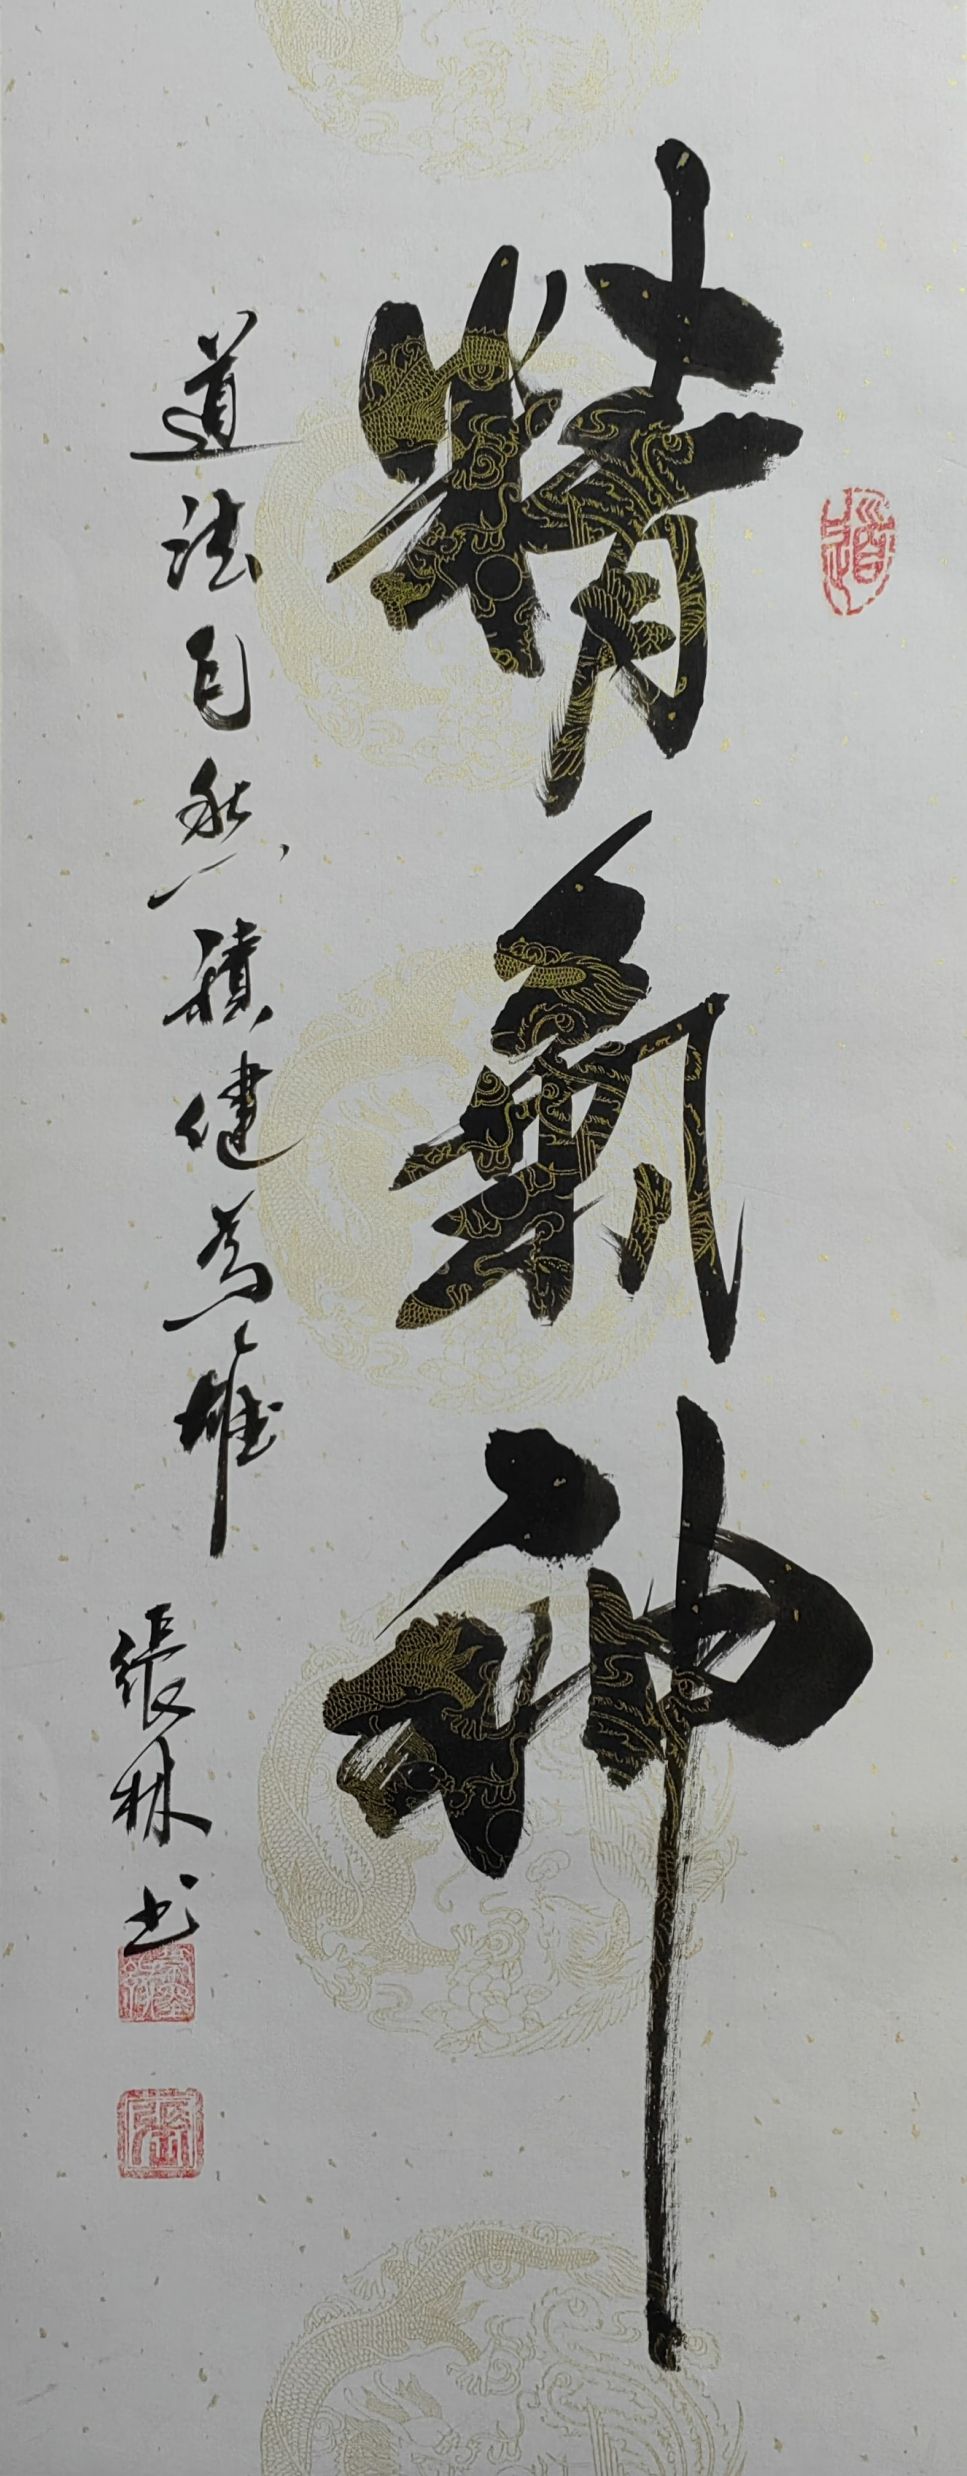 精氣神
道法自然積健為雄
張林书
道